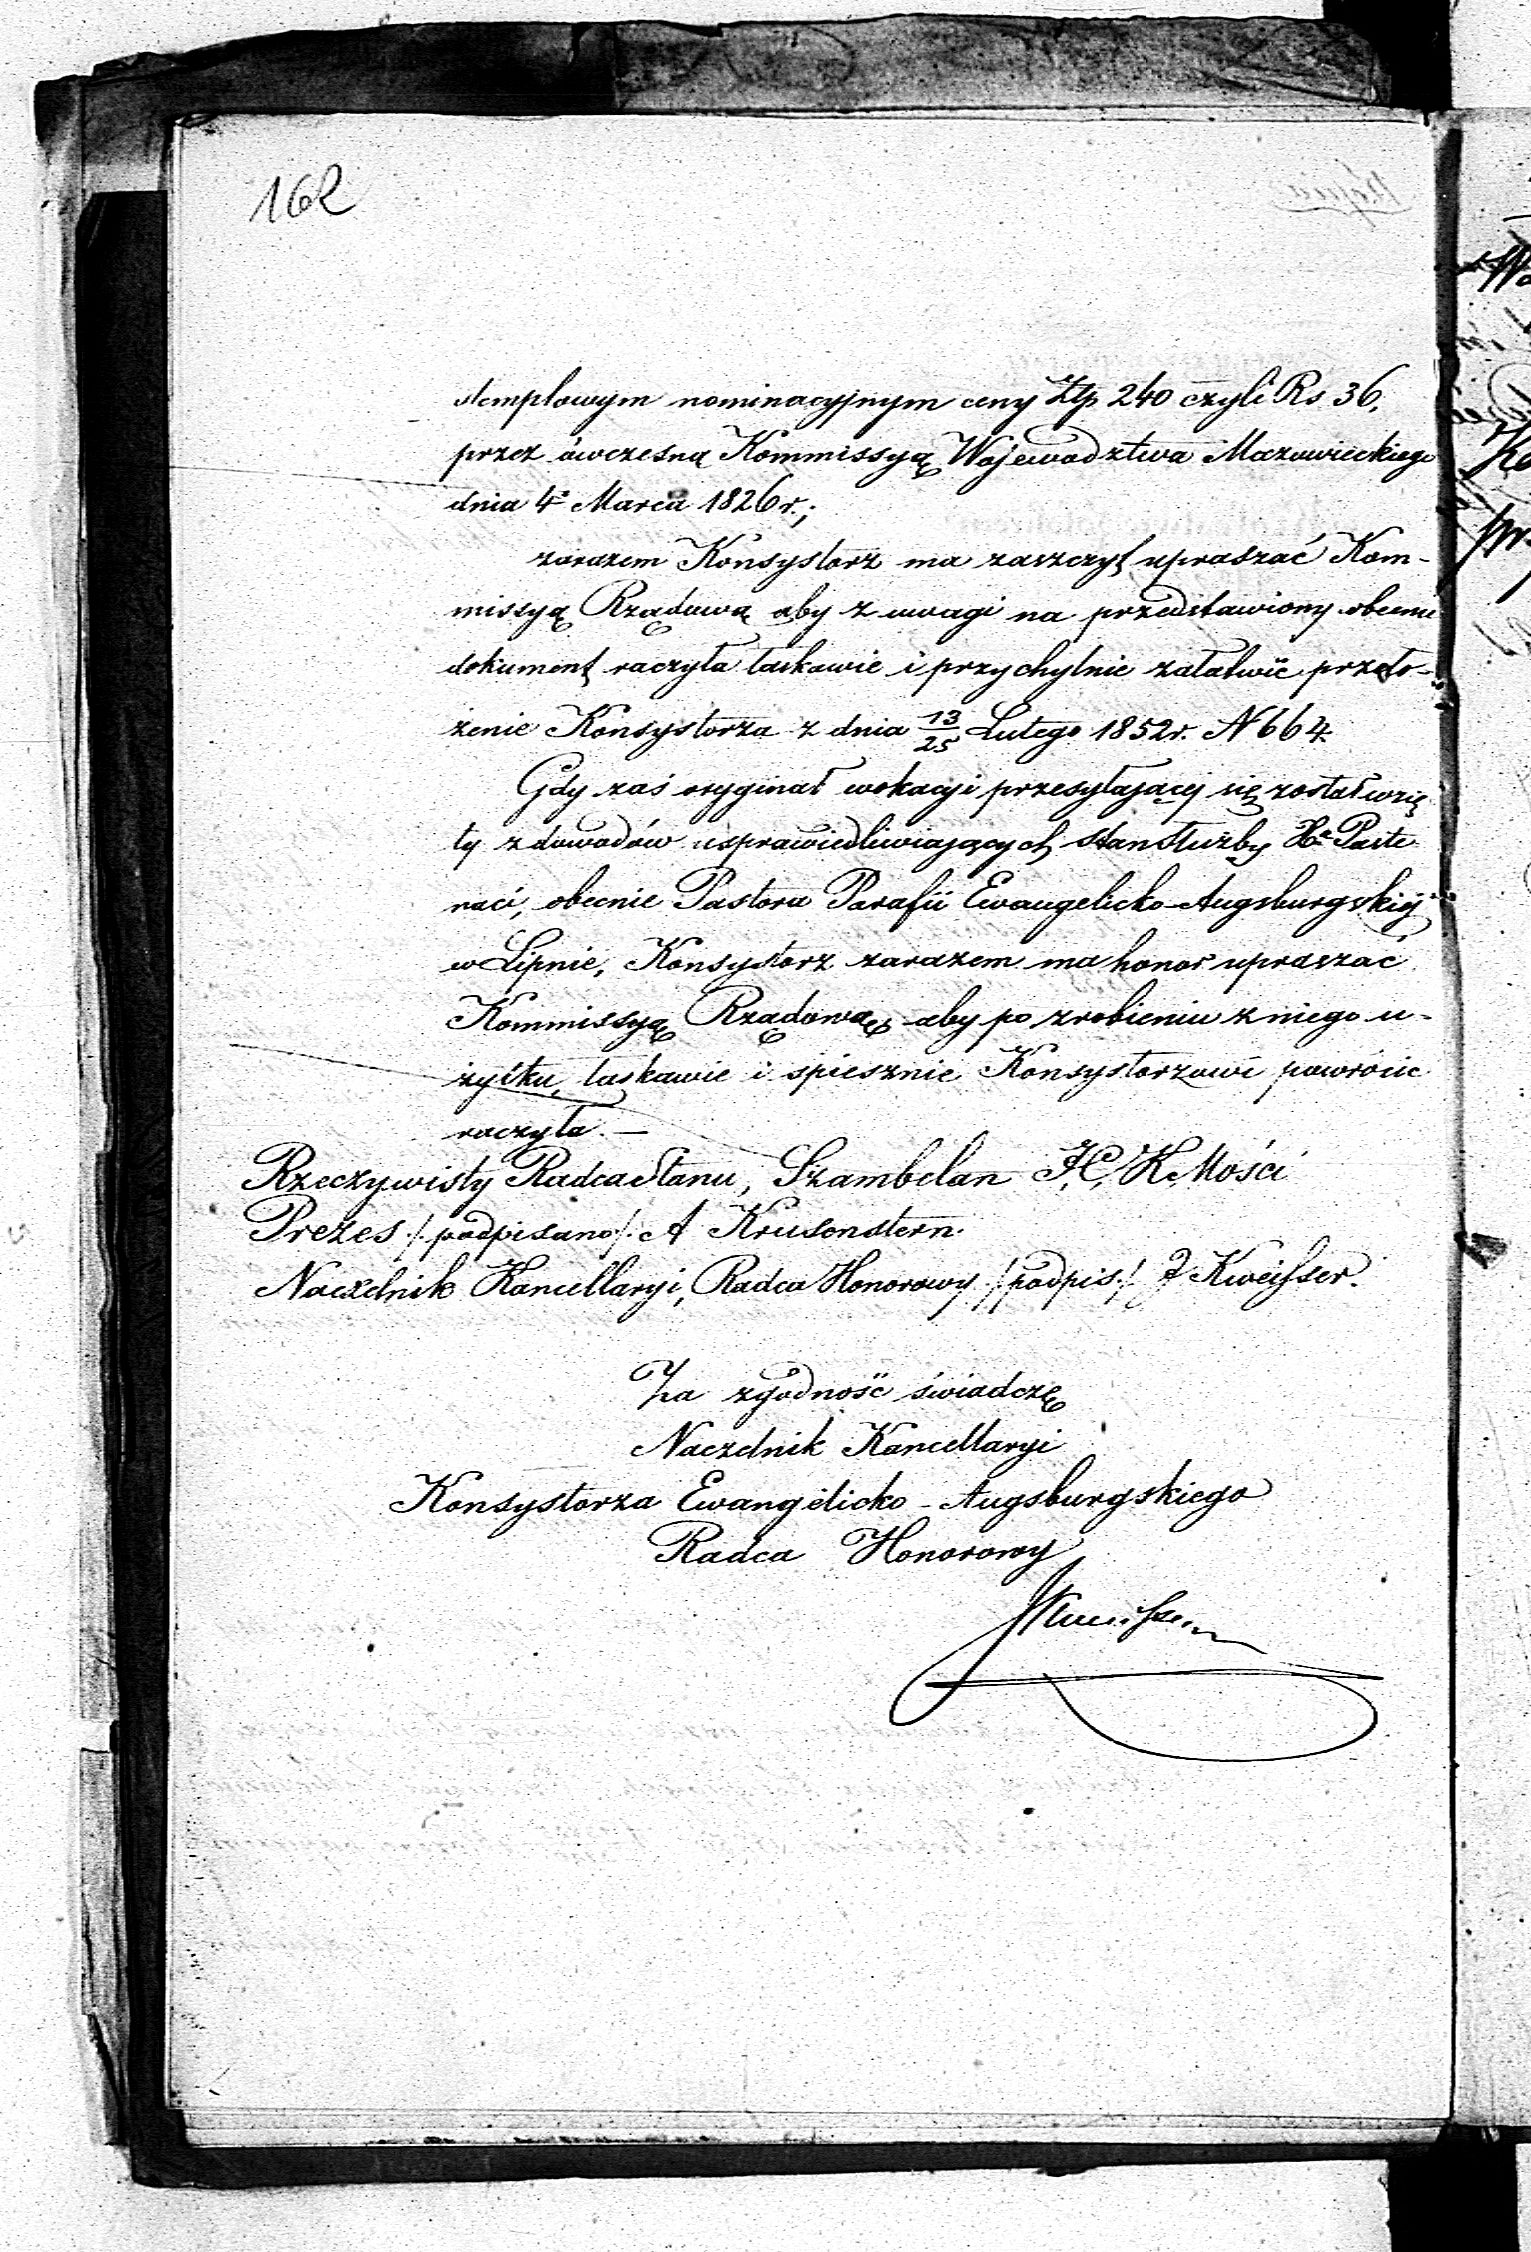 162
stemplowym nominacyjnym ceny Złp 240 czyli Rs 36,
przez ówczesną Kommissyą Województwa Mazowieckiego
dnia 4º Marca 1826 r.;
zarazem Konsystorz ma zaszczyt upraszać Kom-
missyą Rządową aby z uwagi na przedstawiony obecnie
dokument raczyła łaskawie i przychylnie załatwić przeło-
żenie Konsystorza z dnia 13/25 Lutego 1852 r. N 664.
Gdy zaś oryginał wokacyi przesyłającej się został wzię
ty z dowodów usprawiedliwiających stan służby Xa Paste
naci, obecnie Pastora Parafii Ewangelicko-Augsburgskiej
w Lipnie, Konsystorz zarazem ma honor upraszać
Kommissyą Rządową aby po zrobieniu z niego u-
żytku, łaskawie i spiesznie Konsystorzowi powrócić
raczyła. —
Rzeczywisty Radca Stanu, Szambelan J. C. K. Mości
Prezes /. podpisano /. A Krusenstern.
Naczelnik Kancellaryi, Radca Honorowy /. podpis. / J Kweisser.
Za zgodność świadczę
Naczelnik Kancellaryi
Konsystorza Ewangelicko-Augsburgskiego
Radca Honorowy
JKweisser